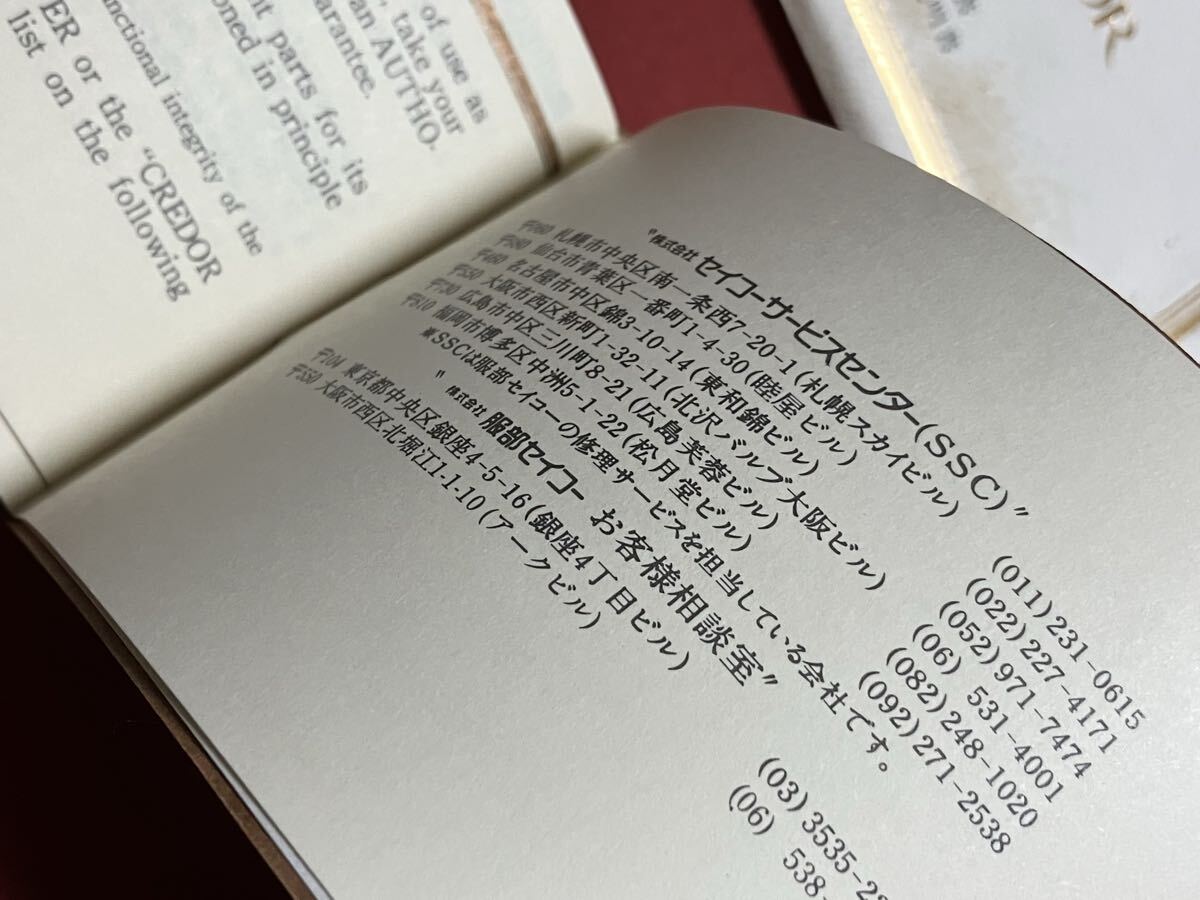 of use as
take your
an AUTHO.
arantee.
nt parts for its
oned in principle
nctional integrity of the
ER or the "CREDOR
list on the following
OR
"株式会社 セイコーサービスセンター(SSC)"
〒060 札幌市中央区南一条西7-20-1(札幌スカイビル) (011)231-0615
〒980 仙台市青葉区一番町1-4-30(睦屋ビル) (022)227-4171
〒460 名古屋市中区錦3-10-14(東和錦ビル) (052)971-7474
〒550 大阪市西区新町1-32-11(北沢バルブ大阪ビル) (06) 531-4001
〒730 広島市中区三川町8-21(広島芙蓉ビル) (082)248-1020
〒810 福岡市博多区中洲5-1-22(松月堂ビル) (092)271-2538
※SSCは服部セイコーの修理サービスを担当している会社です。
"株式会社 服部セイコー お客様相談室"
〒104 東京都中央区銀座4-5-16(銀座4丁目ビル) (03)3535-22
〒550 大阪市西区北堀江1-1-10(アークビル) (06) 538-